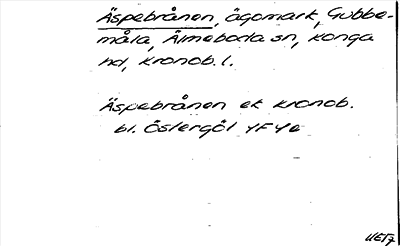 Äspebrånen, ägomark, Gubbe-
måla, Älmeboda sn, Konga
hd, Kronob. l.
Äspebrånen ek Kronob.
bl. Östergöl 4F4e